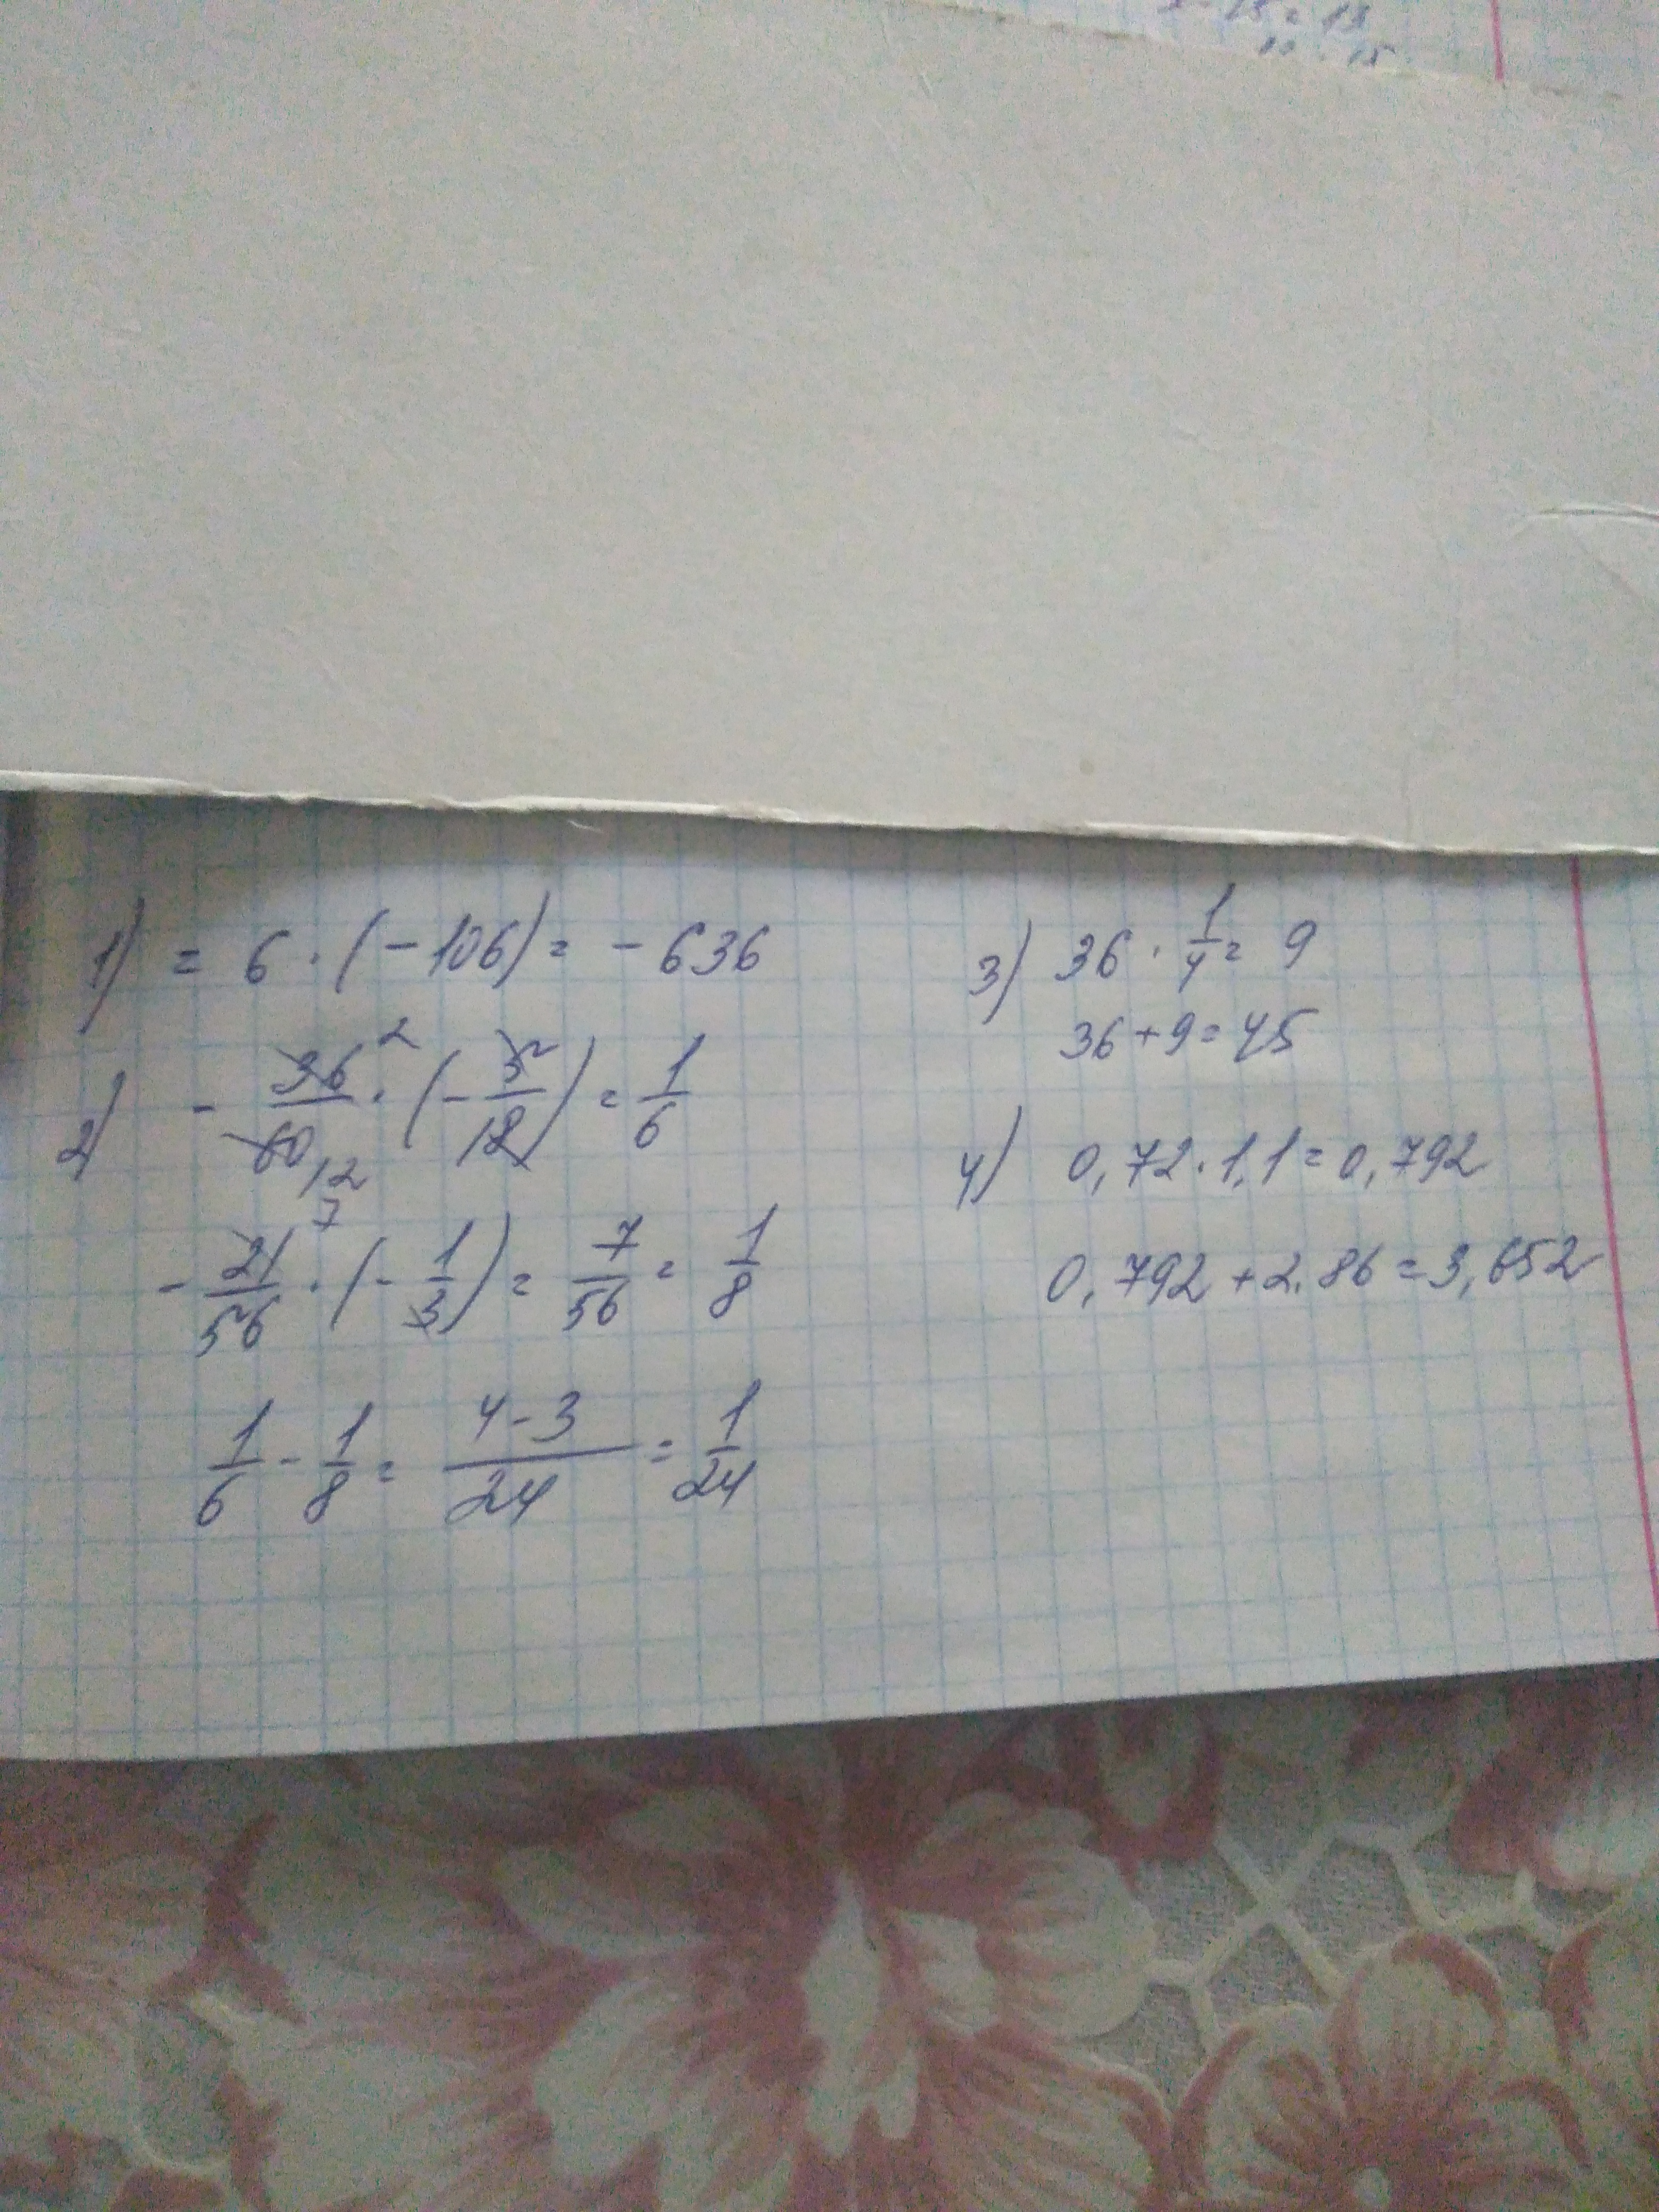 1) = 6 · (-106) = -636
2) - 36/60 · (- 5/18) = 1/6
2
12
7
- 21/56 · (- 1/3) = 7/56 = 1/8
1/6 - 1/8 = 4-3/24 = 1/24
3) 36 · 1/4 = 9
36+9=45
4) 0,72·1,1=0,792
0,792+2.86=3,652